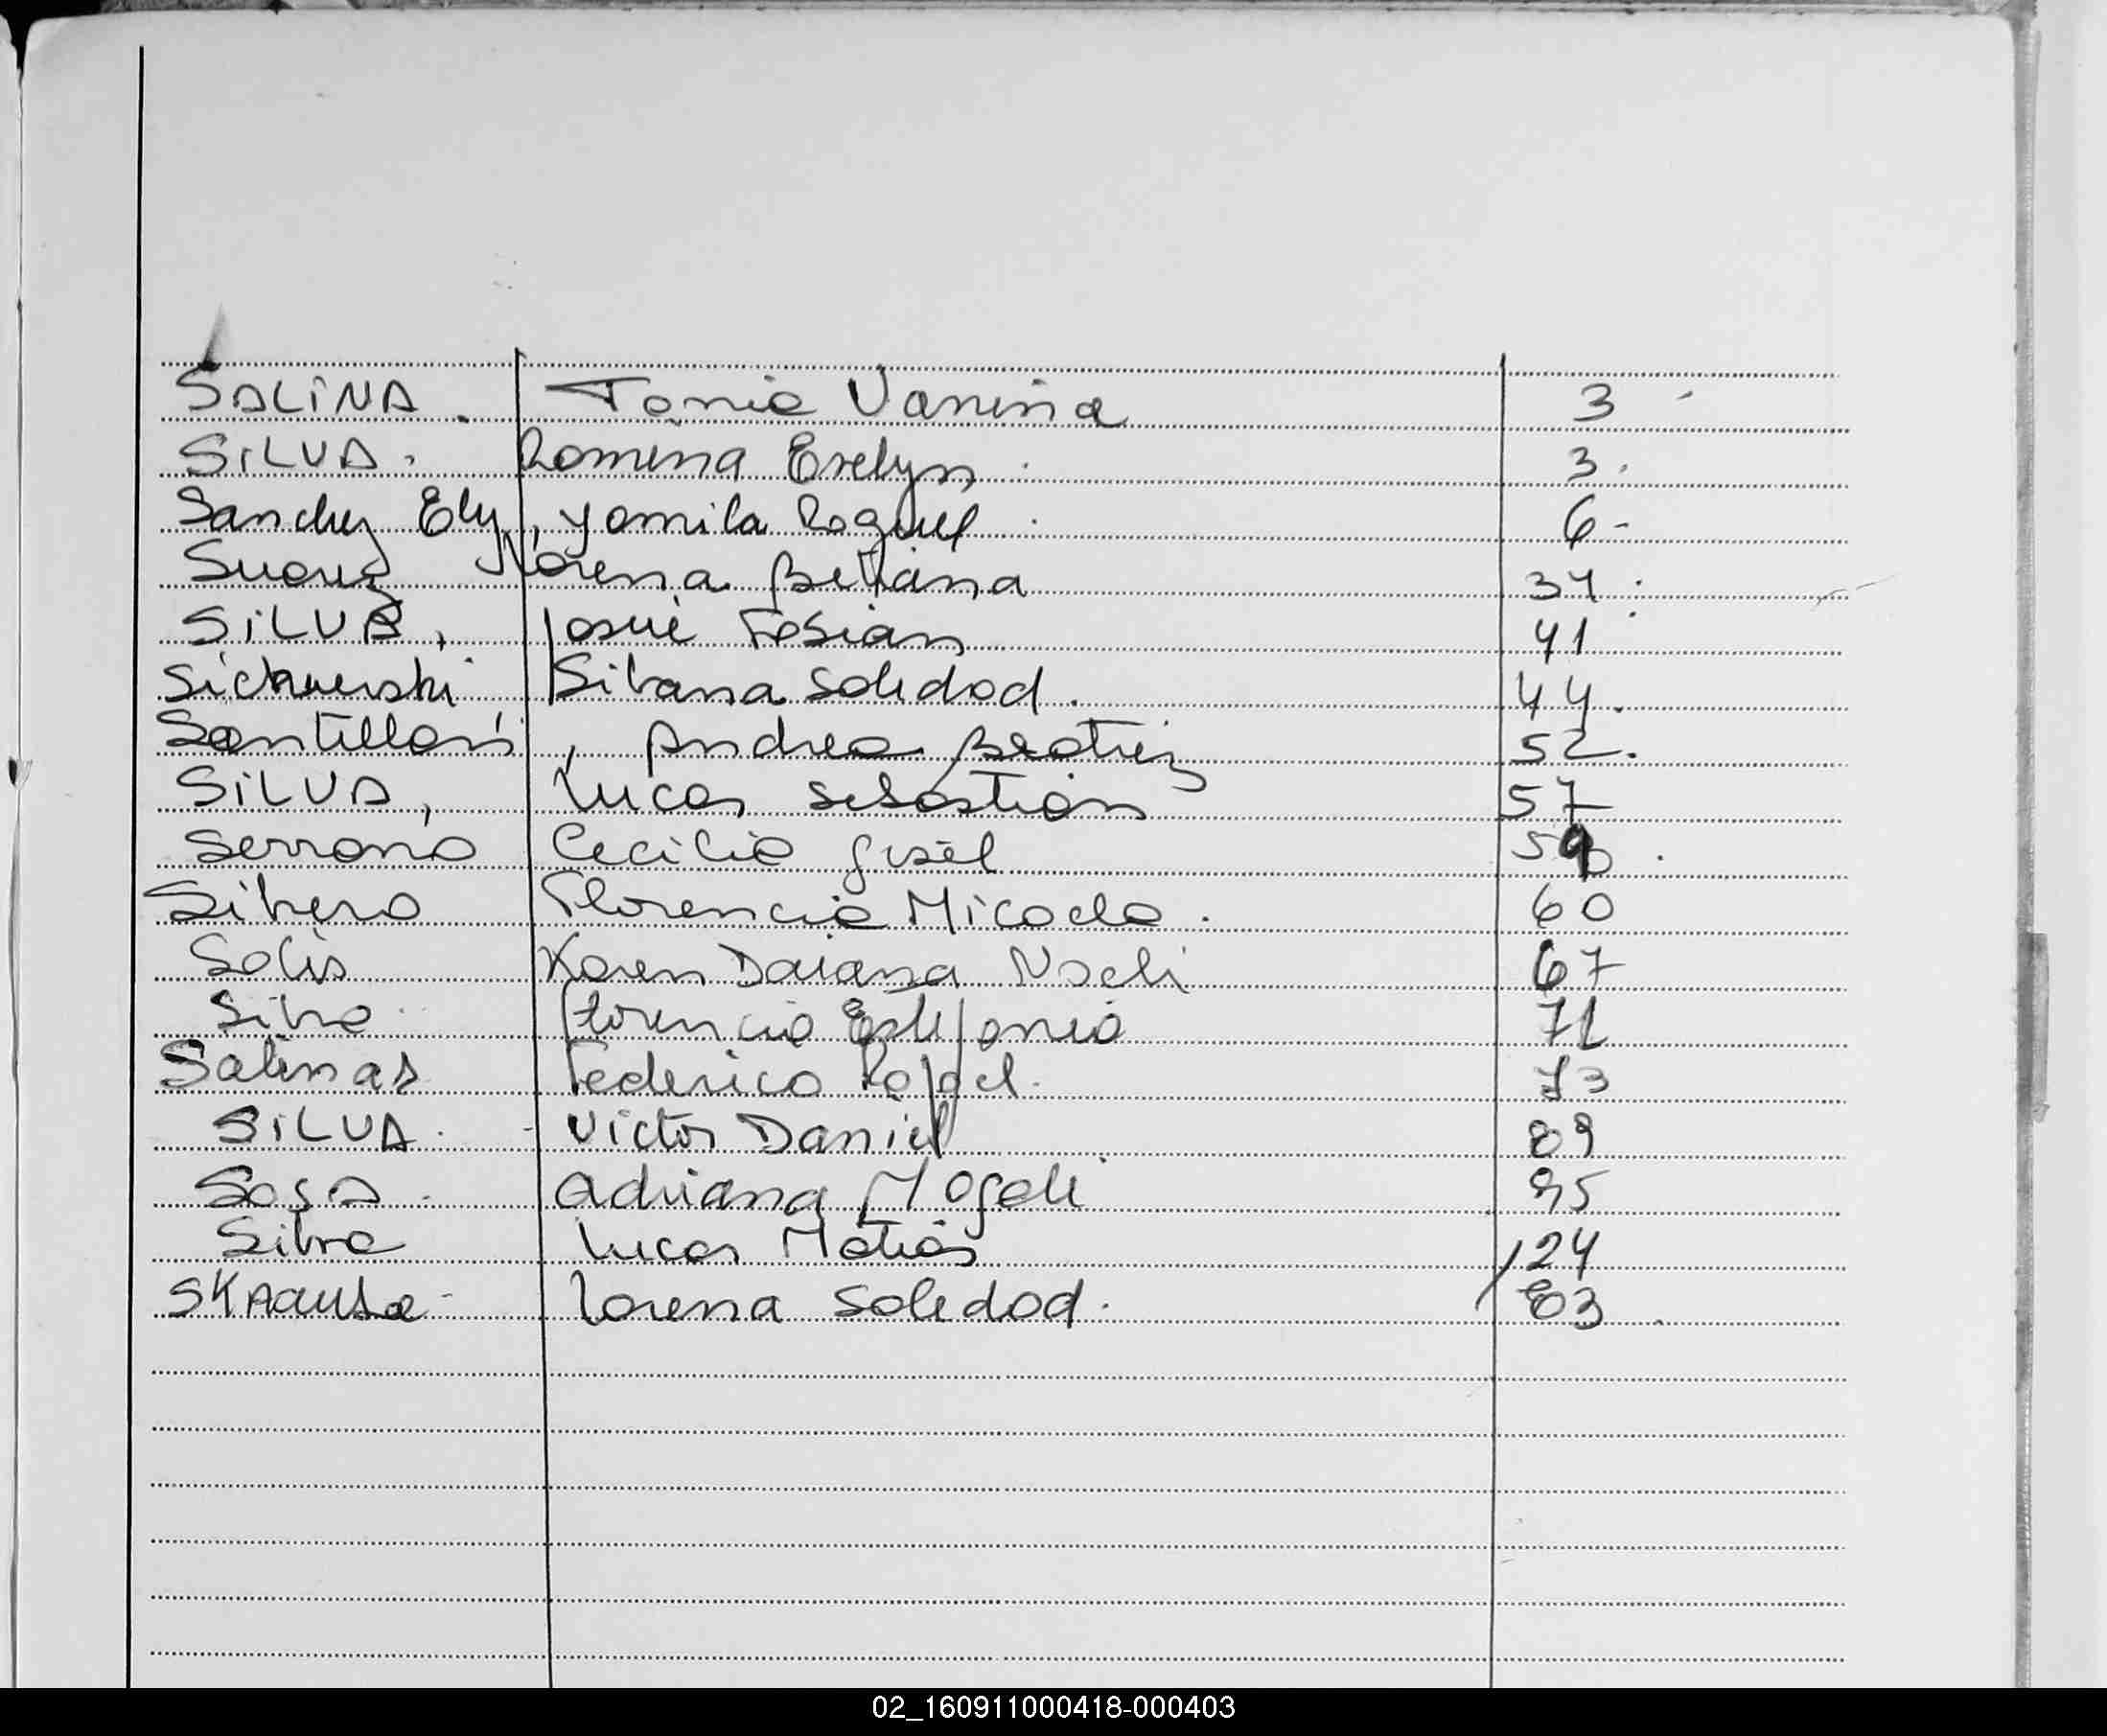 SALINA. Tania Vanina 3
SILVA. Romina Evelyn. 3.
Sanchez Ely, Yamila Raquel. 6-
Suarez Norena Betiana 34.
SILVA, Josué Fabian 41
Sichowski Silvana Soledad. 44.
Santillan, Andrea Beatriz 52.
SILVA, Lucas Sebastian 57
Serrano Cecilia Gisel 59.
Silvero Florencia Micaela. 60
Solis Karen Daiana Noeli 67
Silva Florencia Estefania 71
Salinas Federico Rafael. 73
SILVA. Victor Daniel 89
Sosa. Adriana Magali 95
Silva Lucas Matias 124
Lorena Soledad. 83
02_160911000418-000403